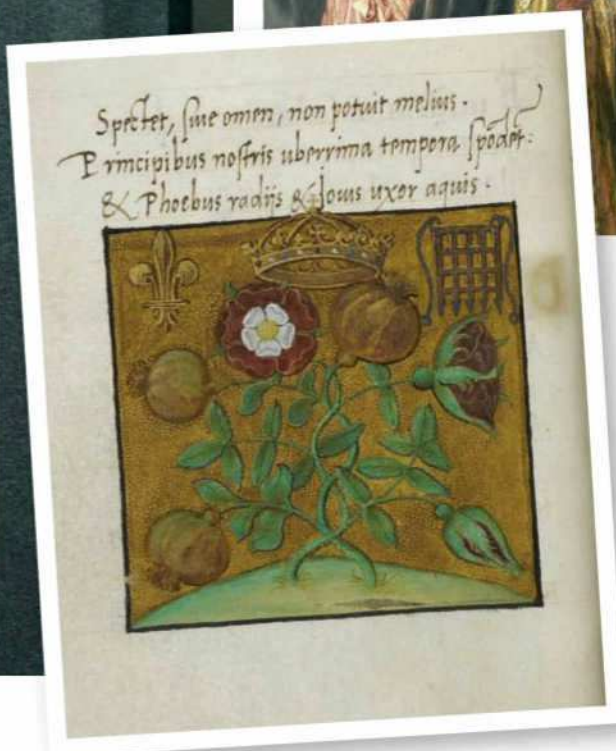 Spectet, siue omen, non potuit melius.
Principibus nostris uberrima tempora spōdet:
& Phoebus radijs & Jouis uxor aquis.